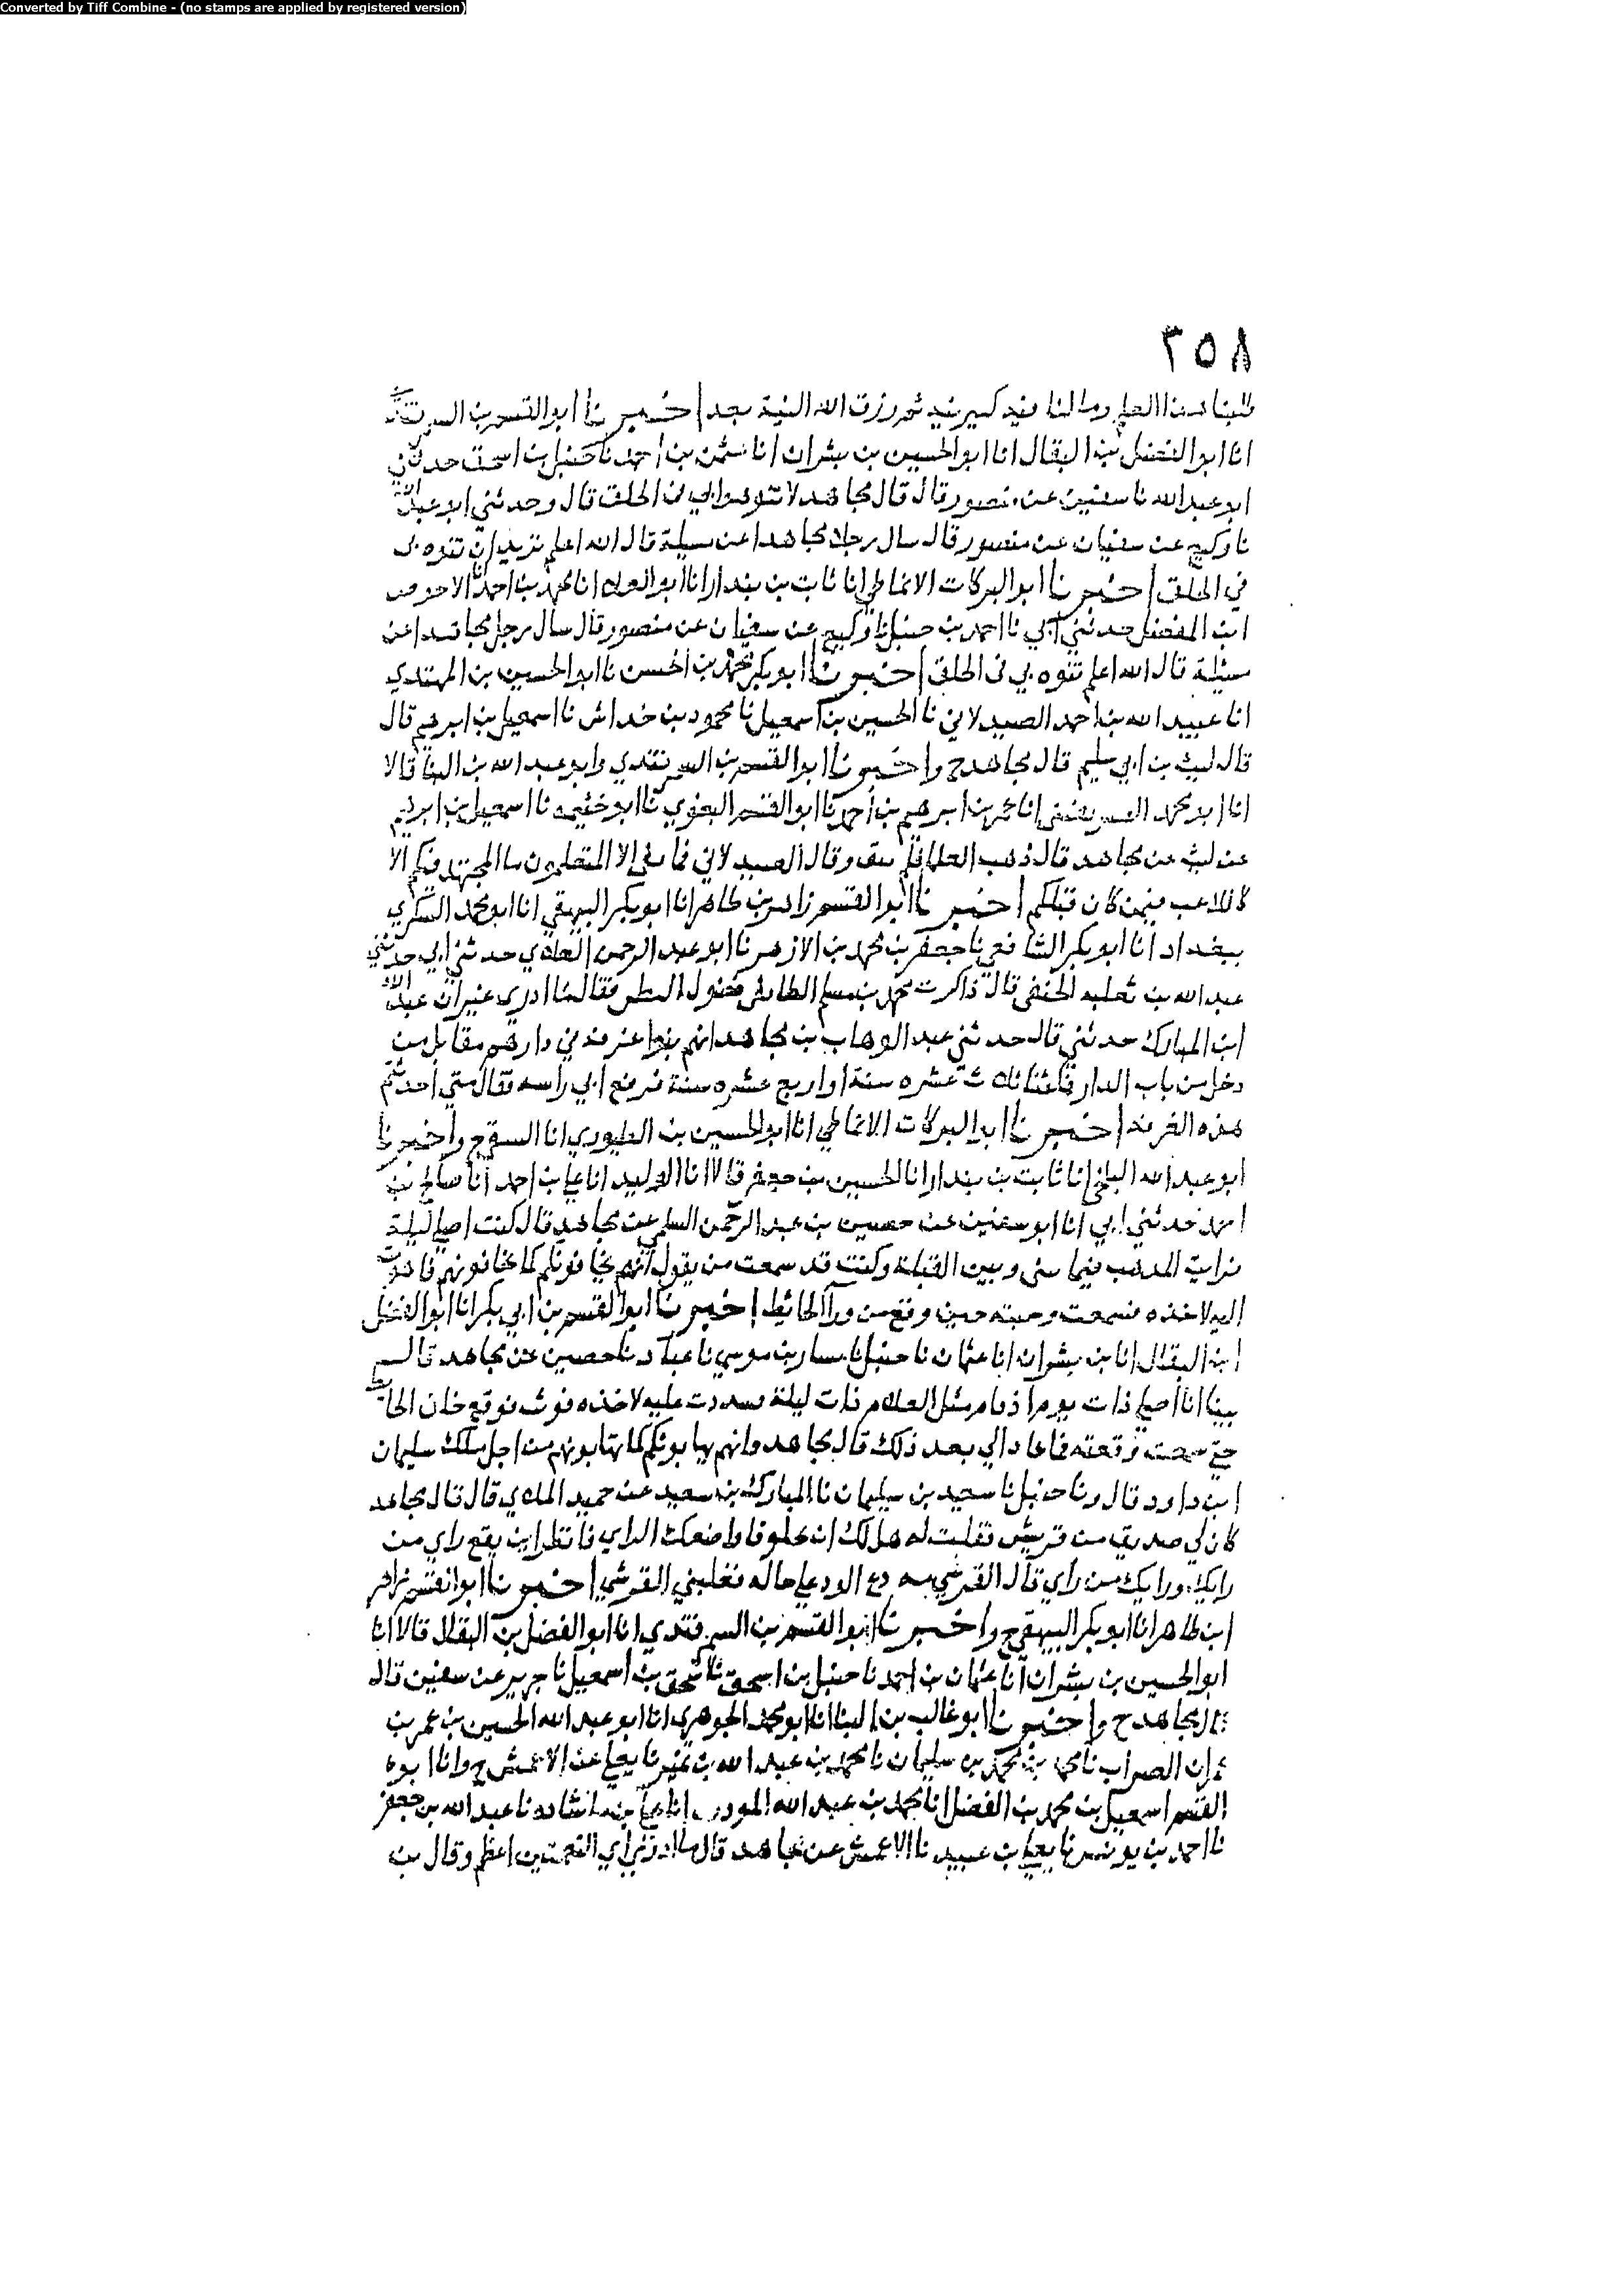 Converted by Tiff Combine - (no stamps are applied by registered version)
٣٥٨
طلبنا هذا العلم وما لنا فيه كبير نية ثم رزق الله النية بعد اخبرنا ابو القسم بن السمرقندي
انا ابو الفضل بن البقال انا ابو الحسين بن بشران انا عثمن بن احمد نا حنبل بن اسحق حدثني
ابو عبد الله نا سفين عن منصور قال قال مجاهد لا تنوهوا بي في الخلق قال وحدثني ابو عبد الله
نا وكيع عن سفيان عن منصور قال سال رجل مجاهدا عن مسيلة قال الله اعلم تريد ان تنوه بي
في الخلق اخبرنا ابو البركات الانماطي انا ثابت بن بندار انا ابو العلاء انا محمد بن احمد انا الاحوص
ابن المفضل حدثني ابي نا احمد بن حنبل نا وكيع عن سفيان عن منصور قال سال رجل مجاهدا عن
مسئلة قال الله اعلم تنوه بي في الخلق اخبرنا ابو بكر محمد بن الحسن نا ابو الحسين بن المهتدي
انا عبيد الله بن احمد الصيدلاني نا الحسين بن اسمعيل نا محمود بن خداش نا اسمعيل بن ابرهيم قال
قال ليث بن ابي سليم قال مجاهد ح واخبرنا ابو القسم بن السمرقندي وابو عبد الله بن البنا قالا
انا ابو محمد الصريفيني انا عمر بن ابرهيم بن احمد نا ابو القسم البغوي نا ابو خثيمه نا اسمعيل بن ابرهيم
عن ليث عن مجاهد قال ذهب العلما فلم يبق وقال الصيدلاني فما بقي الا المتعلمون ما المجتهد فيكم الا
كاللاعب فيمن كان قبلكم اخبرنا ابو القسم زاهر بن طاهر انا ابو بكر البيهقي انا ابو محمد السكري
ببغداد انا ابو بكر الشافعي نا جعفر بن محمد بن الازهر نا ابو عبد الرحمن العلاي حدثني ابي حدثني
عبد الله بن ثعلبه الحنفي قال ذاكرت محمد بن مسلم الطايفي فضول النظر فقال ما ادري غير ان عبد الله
ابن المبارك حدثني قال حدثني عبد الوهاب بن مجاهد انهم بنوا غرفة في دارهم مقابل من
دخل من باب الدار فمكثنا ثلث عشره سنة او اربع عشره سنة فرفع ابي راسه فقال متي احدثتم
هذه الغرفة اخبرنا ابو البركات الانماطي انا ابو الحسين بن الطيوري انا السقرج واخبرنا
ابو عبد الله البلخي انا ثابت بن بندار انا الحسين بن جعفر قالا انا الوليد انا علي بن احمد انا صالح بن
احمد حدثني ابي انا ابو سفين عن حصين بن عبد الرحمن السلمي عن مجاهد قال كنت اصلي ليلة
فرايت المذهب فيما بيني وبين القبلة وكنت قد سمعت من يقول انهم يخافونكم كما تخافونهم فاهويت
اليه لاخذه فسمعت وجبته حين وقع من ورا الحائط اخبرنا ابو القسم بن ابي بكر انا ابو الفضل
ابن البقال انا بن بشران انا عثمان نا حنبل نا يسار بن موسي نا عباد نا حصين عن مجاهد قال
بينا انا اصلي ذات يوم اذ قام مثل الغلام ذات ليلة فشددت عليه لاخذه فوثب فوقع خلف الحايط
حتي سمعت وقعته فما عاد الي بعد ذلك قال مجاهد وانهم يهابونكم كما تهابونهم من اجل ملك سليمان
ابن داود قال ونا حنبل نا سعيد بن سليمان نا المبارك بن سعيد عن حميد الملاي قال قال مجاهد
كان لي صديق من قريش فقلت له هل لك ان تخلو فاواضعك الراي فانظر اين يقع راي من
رايك ورايك من راي قال القرشي دع الود علي حاله فغلبني القرشي اخبرنا ابو القسم زاهر
ابن طاهر انا ابو بكر البيهقي ح واخبرنا ابو القسم بن السمرقندي انا ابو الفضل بن البقال قالا انا
ابو الحسين بن بشران انا عثمان بن احمد نا حنبل بن اسحق نا اسحق بن اسمعيل نا جرير عن سفين قال
قال مجاهد ح واخبرنا ابو غالب بن البنا انا ابو محمد الجوهري انا ابو عبد الله الحسين بن عمر بن
عمران الضراب نا محمد بن محمد بن سليمان نا محمد بن عبد الله بن نمير نا يعلي عن الاعمش ح وانا ابوه
القسم اسمعيل بن محمد بن الفضل انا محمد بن عبد الله المودب انا علي بن ماشاده نا عبد الله بن جعفر
نا احمد بن يونس نا يعلي بن عبيد نا الاعمش عن مجاهد قال ما ادري اي النعمتين اعظم وقال بن